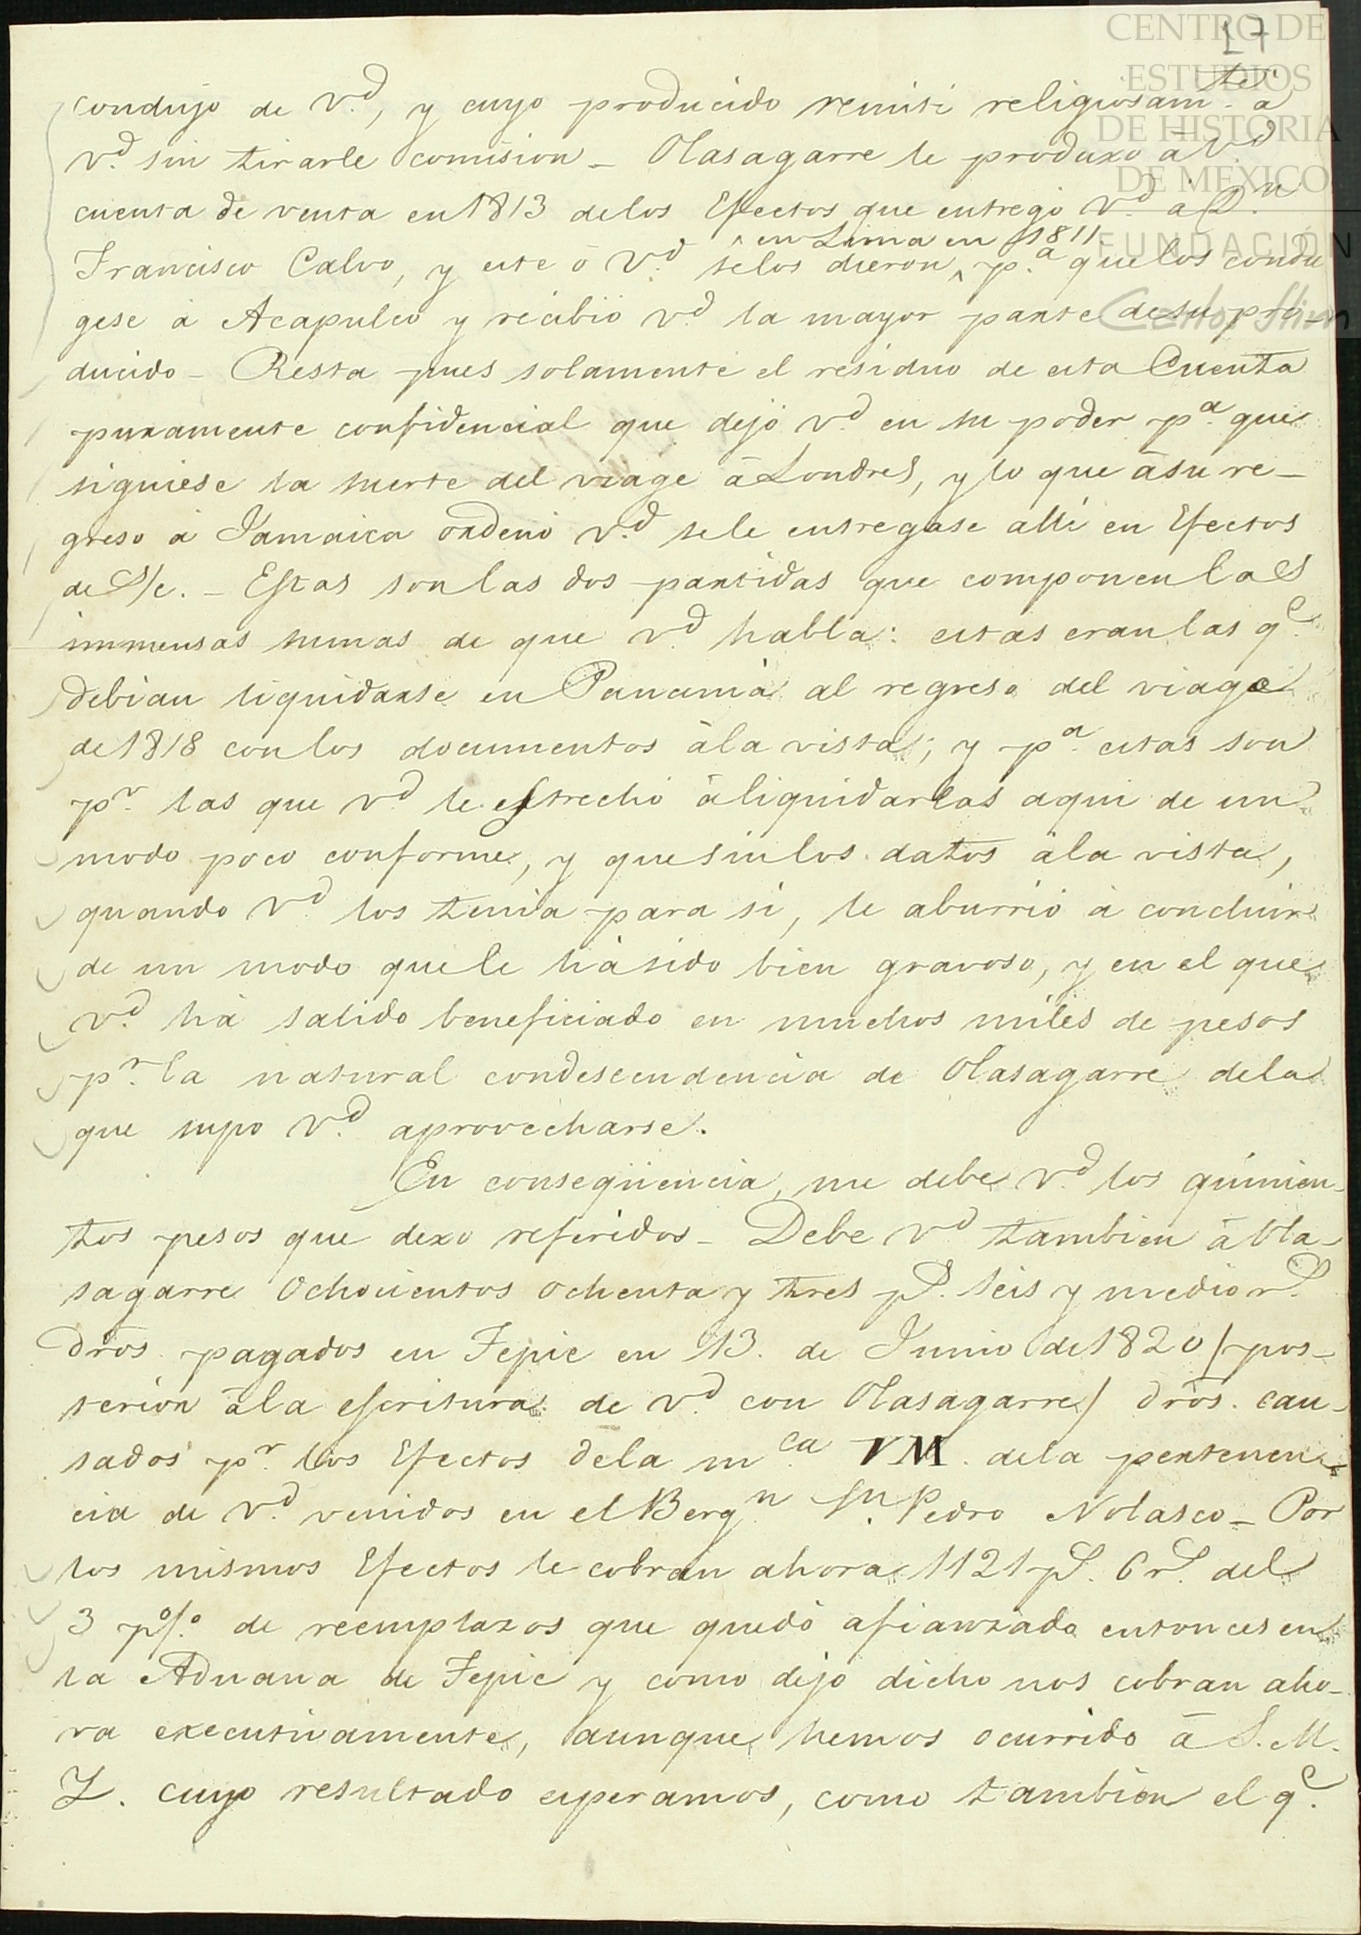 CENTRO DE
ESTUDIOS
DE HISTORIA
DE MÉXICO
FUNDACIÓN
Carlos Slim
17
condujo de V.d, y cuyo producido remisi religiosam.te à
V.d sin tirarle comision _ Olasagarre le produxo à V.d
cuenta de venta en 1813 de los Efectos que entregó V.d à D.n
en Lima en 1811
Francisco Calvo, y este ò V.d selos dieron ^ p.a que los condu
gese à Acapulco y recibiò V.d la mayor parte de su pro_
ducido _ Resta pues solamente el residuo de esta Cuenta
puramente confidencial que dejó V.d en su poder p.a que
siguiese la suerte del viage à Londres, y lo que à su re_
greso à Jamaica ordenò V.d se le entregase allí en Efectos
de S/c. _ Estas son las dos partidas que componen las
immensas sumas de que V.d habla: estas eran las q.e
debian liquidarse en Panamà al regreso del viage
de 1818 con los documentos à la vista; y p.a estas son
p.r las que V.d le estrechó à liquidarlas aqui de un
modo poco conforme, y que sin los datos à la vista,
quando V.d los tenia para sí, le aburrió à concluir
de un modo que le hà sido bien gravoso, y en el que
V.d hà salido beneficiado en muchos miles de pesos
p.r la natural condescendencia de Olasagarre dela
que supo V.d aprovecharse.
En conseqüencia, me debe V.d los quinien_
tos pesos que dexo referidos _ Debe V.d tambien à Ola_
sagarre Ochocientos ochenta y tres p.s seis y medio r.s
dr̃os pagados en Tepic en 13. de Junio de 1820 / pos_
terior à la escritura de V.d con Olasagarre / dr̃os. cau_
sados p.r los Efectos dela m.ca VM. dela pertenen_
cia de V.d venidos en el Berg.n S.n Pedro Nolasco _ Por
los mismos Efectos le cobran ahora 1121 p.s 6 r.s del
3 p%o de reemplazos que quedó afianzado entonces en
la Aduana de Tepic y como dejo dicho nos cobran aho_
ra executivamente, aunque hemos ocurrido à S. M.
Y. cuyo resultado esperamos, como tambien el q.e